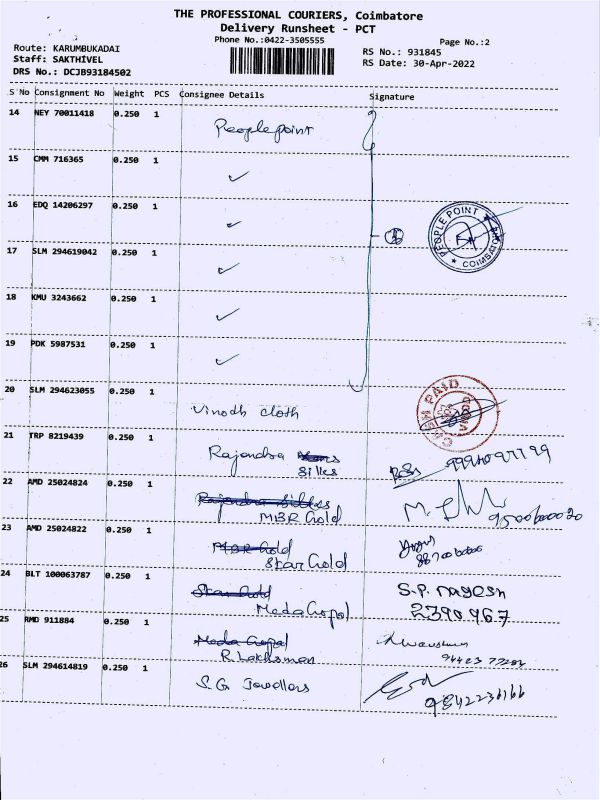 THE PROFESSIONAL COURIERS, Coimbatore
Delivery Runsheet - PCT
Phone No.:0422-3505555
Page No.:2
Route: KARUMBUKADAI
Staff: SAKTHIVEL
DRS No.: DCJB93184502
RS No.: 931845
RS Date: 30-Apr-2022
S No Consignment No Weight PCS Consignee Details Signature
14 NEY 70011418 0.250 1
People point
15 CMM 716365 0.250 1
16 EDQ 14206297 0.250 1
PEOPLE POINT
COIMBATORE
17 SLM 294619042 0.250 1
18 KMU 3243662 0.250 1
19 PDK 5987531 0.250 1
20 SLM 294623055 0.250 1
Vinodh cloth
CASH PAID
21 TRP 8219439 0.250 1
Rajendra
Silks
22 AMD 25024824 0.250 1
Rajendra Silks
MBR Gold
23 AMD 25024822 0.250 1
MBR Gold
Star Gold
24 BLT 100063787 0.250 1
Star Gold
Meda Gopal
S.P. nagesh
2390967
25 RMD 911884 0.250 1
Meda Gopal
R Lakhsman
26 SLM 294614819 0.250 1
S.G Jewellers
9842236166